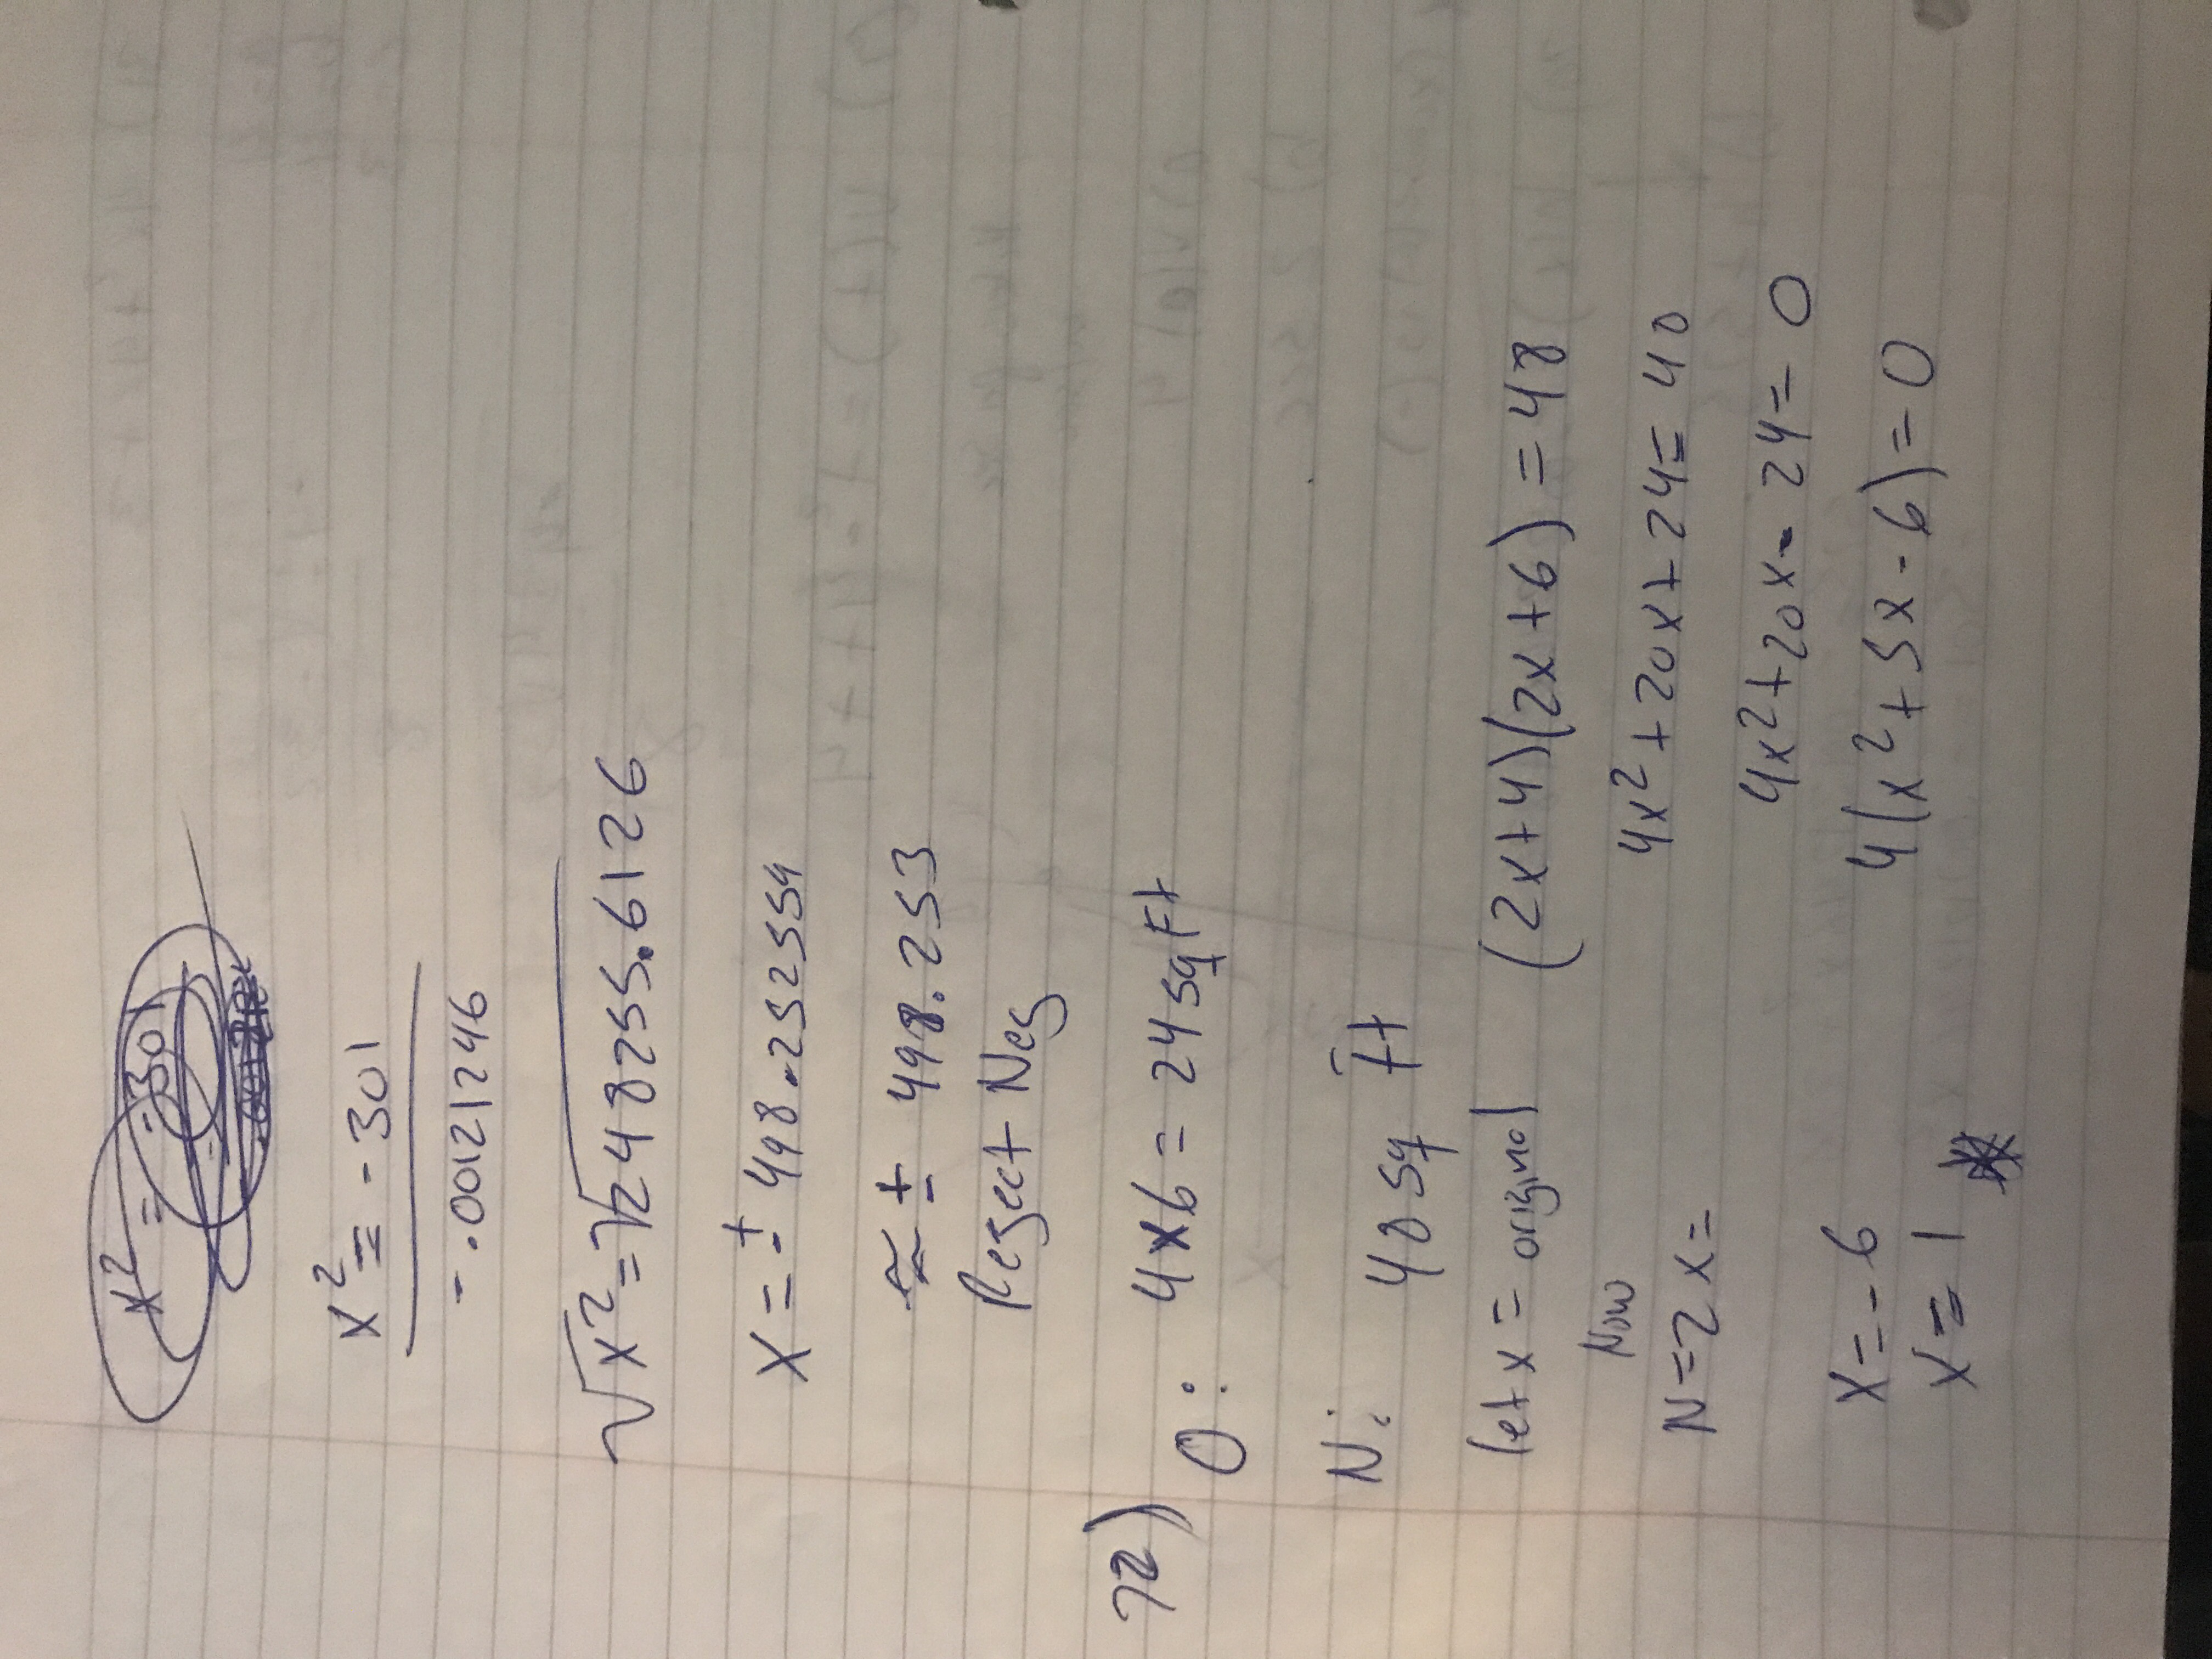 x² = -301
x² = -301
-.00121246
√x² = √248255.6126
x = ± 498.252559
≈ ± 498.253
Regect Neg
72)
O: 4x6 = 24 sq Ft
N: 48 sq Ft
let x = original (2x+4)(2x+6) = 48
Now
N=2x= 4x²+20x+24= 48
4x²+20x-24= 0
x=-6 4(x²+5x-6)=0
x=1